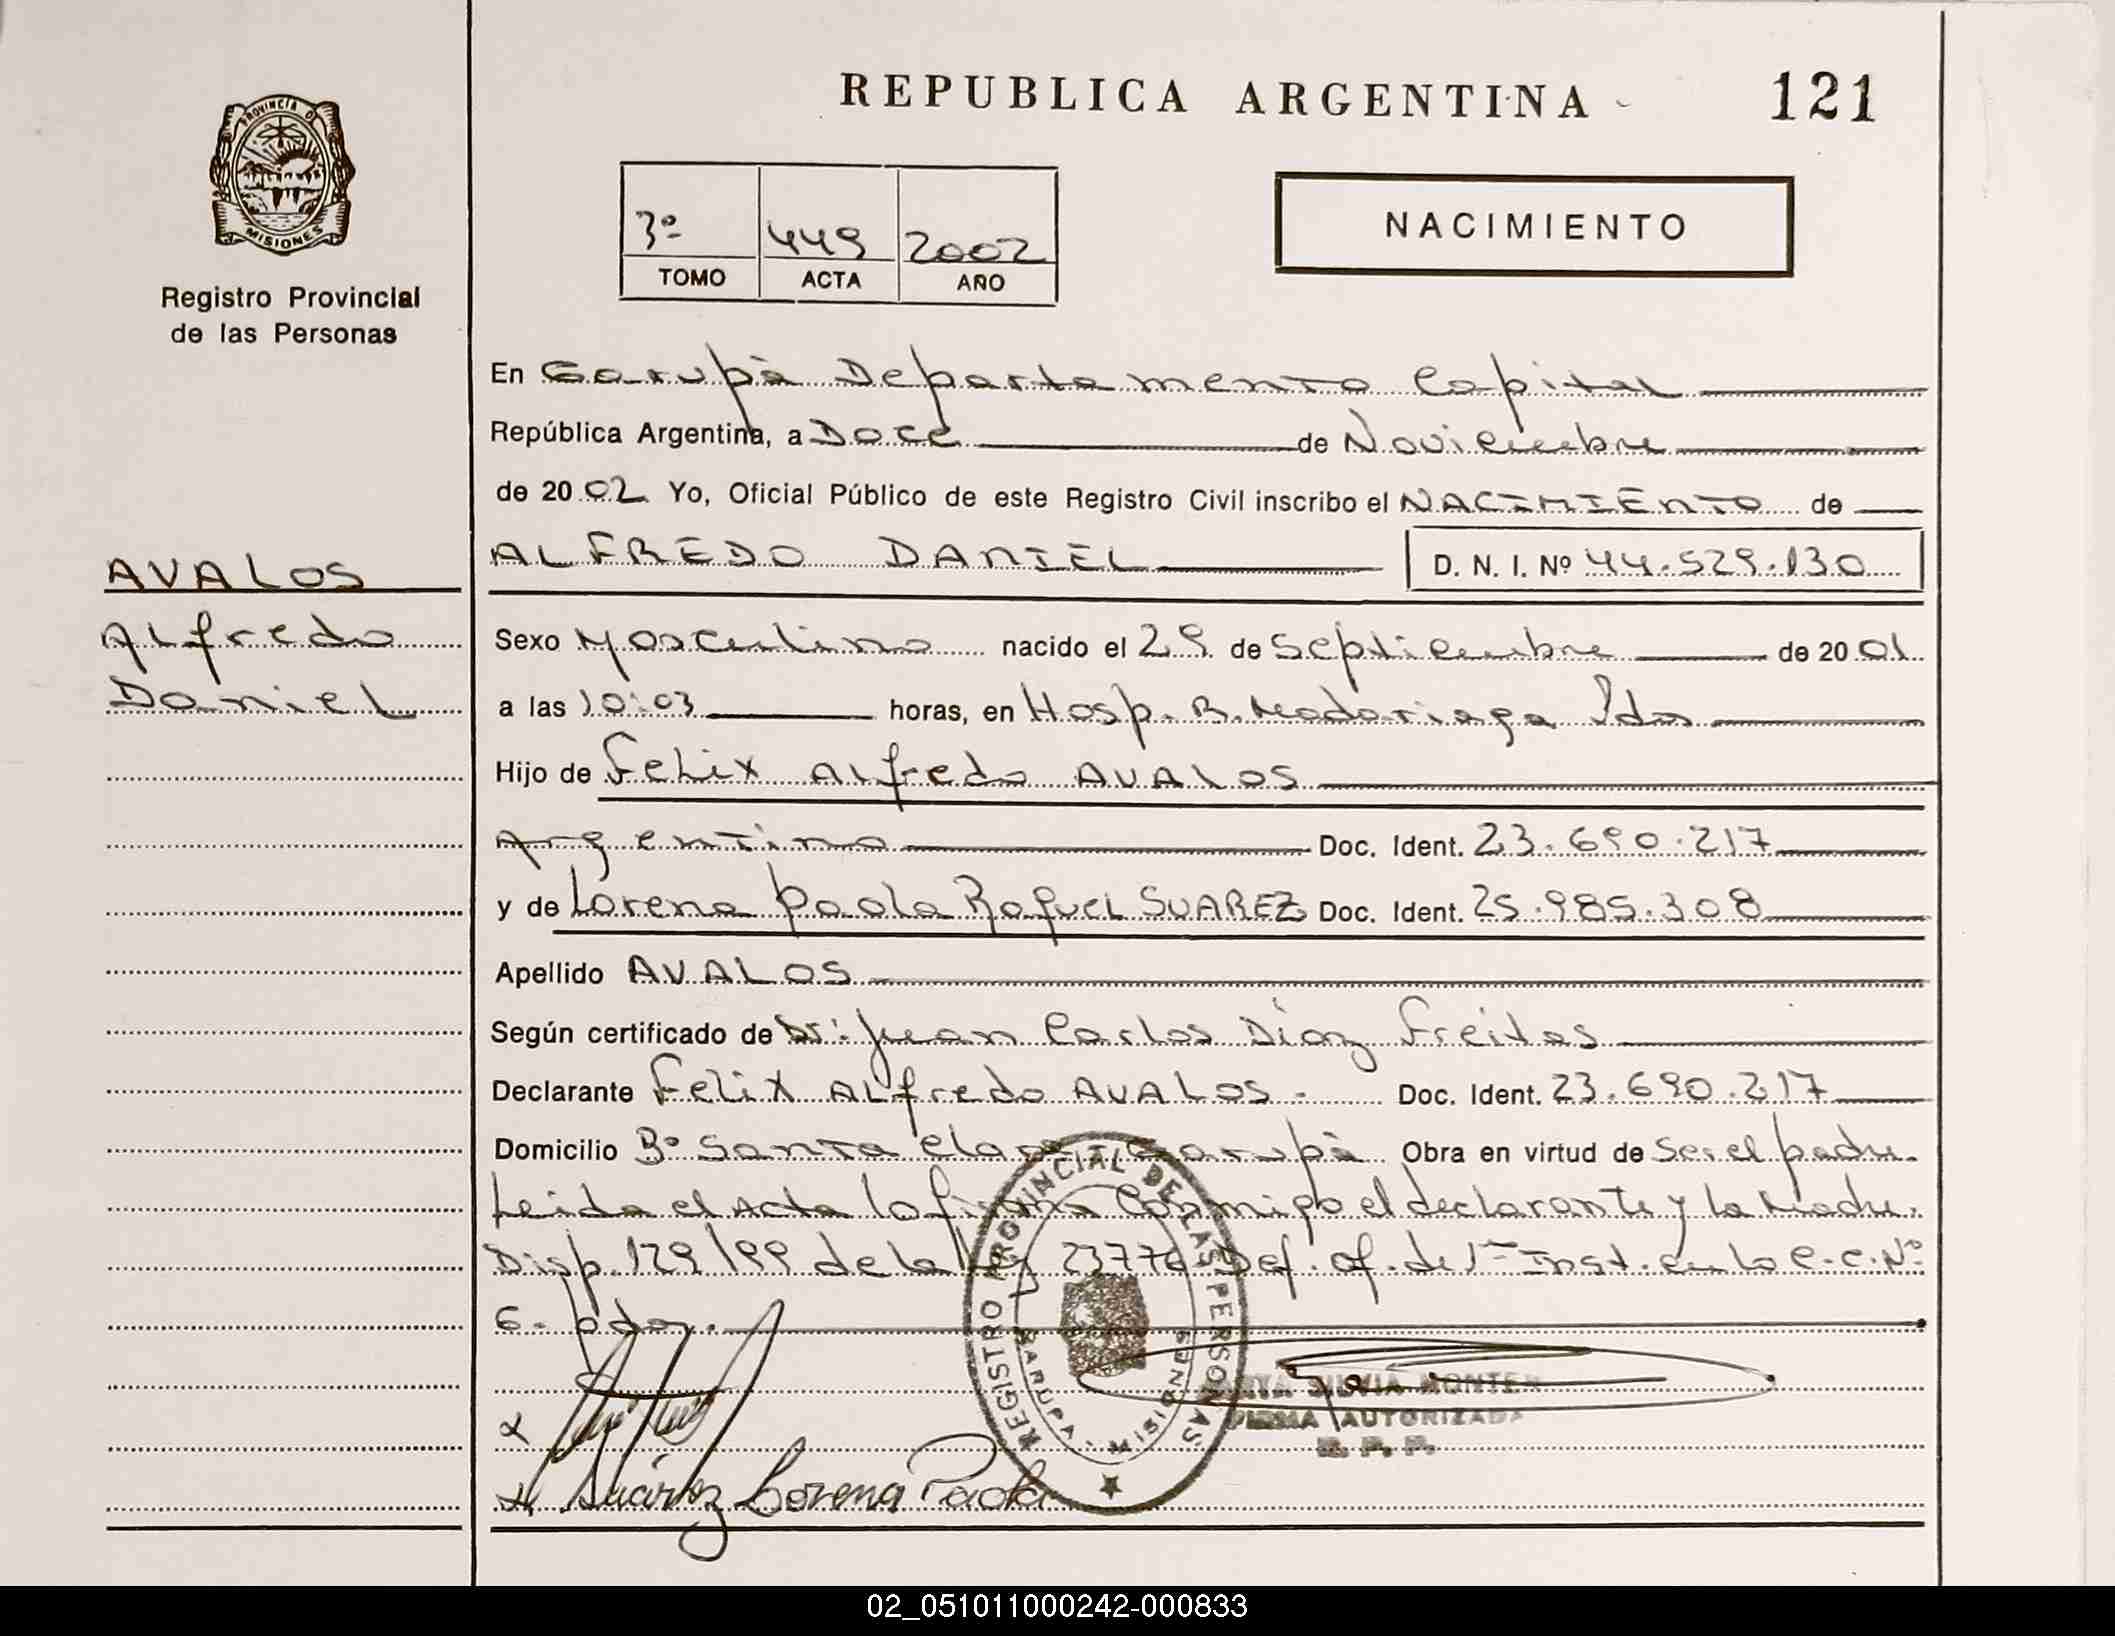 REPUBLICA ARGENTINA
121
PROVINCIA DE
MISIONES
Registro Provincial
de las Personas
3º 449 2002
TOMO ACTA AÑO
NACIMIENTO
En Garupà Departamento Capital
República Argentina, a Doce de Noviembre
de 2002 Yo, Oficial Público de este Registro Civil inscribo el NACIMIENTO de
ALFREDO DANIEL D. N. I. Nº 44.529.130
AVALOS
Alfredo
Daniel
Sexo Masculino nacido el 29 de Septiembre de 2001
a las 10:03 horas, en Hosp. R. Madariaga Pdas
Hijo de Felix Alfredo AVALOS
Argentino Doc. Ident. 23.690.217
y de Lorena Paola Raquel SUAREZ Doc. Ident. 25.985.308
Apellido AVALOS
Según certificado de Dr: Juan Carlos Diaz Freitas
Declarante Felix Alfredo AVALOS. Doc. Ident. 23.690.217
Domicilio Bº Santa Clara Garupà Obra en virtud de Ser el padre.
Leida el Acta la firma Conmigo el declarante y la Madre.
Disp. 129/99 de la Ley 23776 Def. of. de 1º Inst. en lo C.C. Nº
6. pdas.
REGISTRO PROVINCIAL DE LAS PERSONAS
GARUPA - MISIONES
SILVIA MONTER
FIRMA AUTORIZADA
R. P. P.
Suárez Lorena Paola
02_051011000242-000833